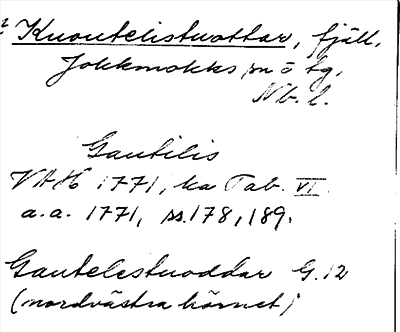 Knoutelistuottar, fjäll.
Jokkmokks sn o tg.
Nb. l.
Gautilis
VAH 1771, ka Tab. VI.
a.a. 1771, ss. 178, 189.
Gautelestuoddar G. 12
(nordvästra hörnet)